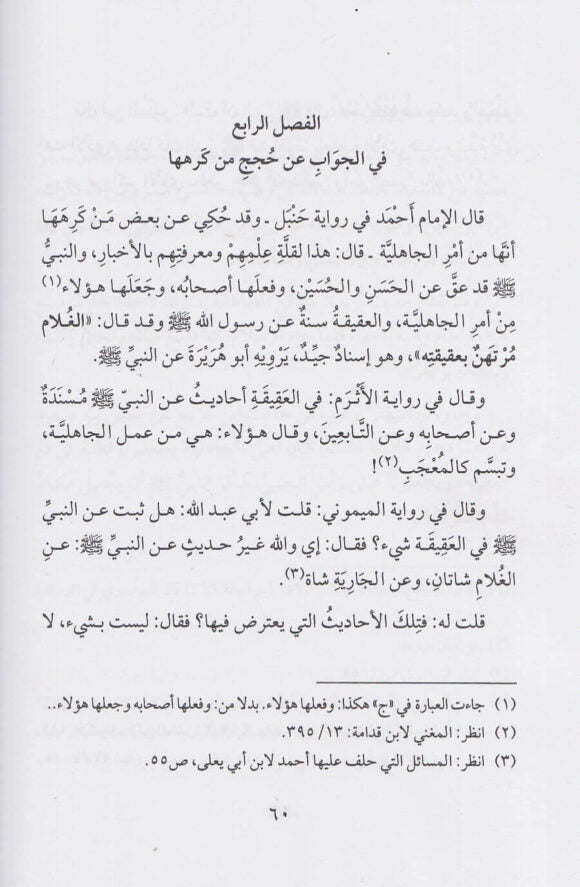 الفصل الرابع
في الجوابِ عن حُججِ من كَرهها
قال الإمام أَحمْد في رواية حَنْبَل ـ وقد حُكِي عن بعض مَنْ كَرِهَهَا
أنَّها من أمْرِ الجاهليَّة ـ قال: هذا لقلَّةِ عِلْمِهِمْ ومعرفتِهم بالأخبارِ، والنبيُّ
ﷺ قد عقَّ عن الحَسَنِ والحُسَيْن، وفعلَها أصحابُه، وجَعَلَها هؤلاء(١)
مِنْ أمرِ الجاهليَّة، والعقيقةُ سنةٌ عن رسول الله ﷺ وقد قال: «الغُلام
مُرْتَهَنٌ بعقيقتِه»، وهو إسنادٌ جيِّدٌ، يَرْوِيهِ أبو هُرَيْرَةَ عن النبيِّ ﷺ.
وقـال في روايـة الأَثْـرَمِ: في العَقِيقَةِ أحاديثُ عن النبـيّ ﷺ مُسْنَدَةٌ
وعن أصحابِه وعن التَّابعِينَ، وقال هؤلاء: هي من عمل الجاهليَّة،
وتبسَّم كالمُعْجَبِ(٢)!
وقال في رواية الميموني: قلت لأبي عبد الله: هل ثبت عن النبيِّ
ﷺ في العَقِيقَة شيء؟ فقال: إي والله غيرُ حديثٍ عن النبيِّ ﷺ: عنِ
الغُلامِ شاتانِ، وعن الجَارِيَةِ شاة(٣).
قلت له: فتِلكَ الأحاديثُ التي يعترض فيها؟ فقال: ليست بشيء، لا
(١) جاءت العبارة في «ج» هكذا: وفعلها هؤلاء. بدلا من: وفعلها أصحابه وجعلها هؤلاء..
(٢) انظر: المغني لابن قدامة: ١٣/ ٣٩٥.
(٣) انظر: المسائل التي حلف عليها أحمد لابن أبي يعلى، ص٥٥.
٦٠